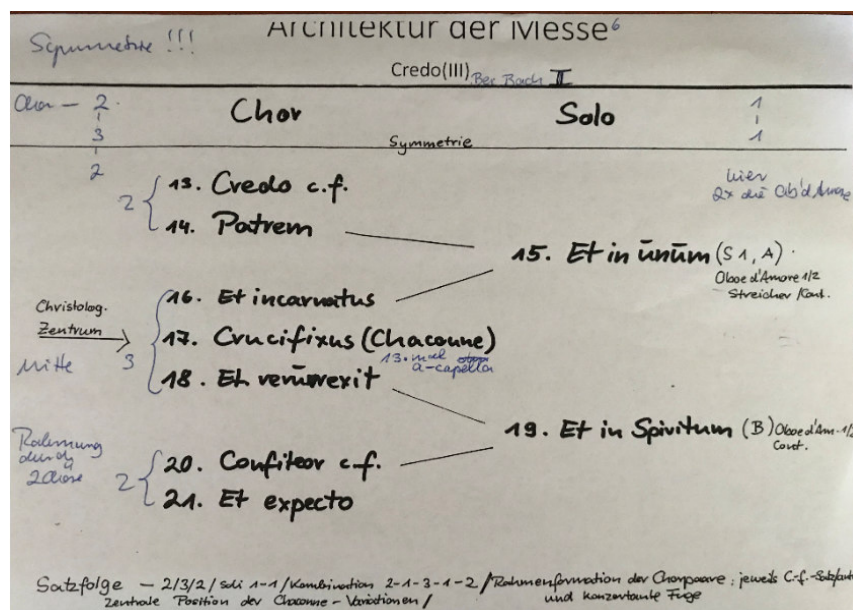 Symmetrie !!!
Architektur der Messe⁶
Credo(III) Bei Bach II
Chor – 2
3
2
Chor
Solo
1
1
Symmetrie
hier
2x die Ob'd'Amore
2 { 13. Credo c.f.
14. Patrem
15. Et in unum (S1, A)
Oboe d'Amore 1/2
Streicher / Cont.
Christolog.
Zentrum
Mitte
3 { 16. Et incarnatus
17. Crucifixus (Chaconne)
13. mal
a-capella
18. Et resurrexit
19. Et in Spiritum (B) Oboe d'Am. 1/2
Cont.
Rahmung
durch
2 Chöre
2 { 20. Confiteor c.f.
21. Et expecto
Satzfolge – 2/3/2/ Soli 1-1 / Kombination 2-1-3-1-2 / Rahmenformation der Chorpaare: jeweils C.-f.-Satz
zentrale Position der Chaconne-Variationen / und konzertante Fuge